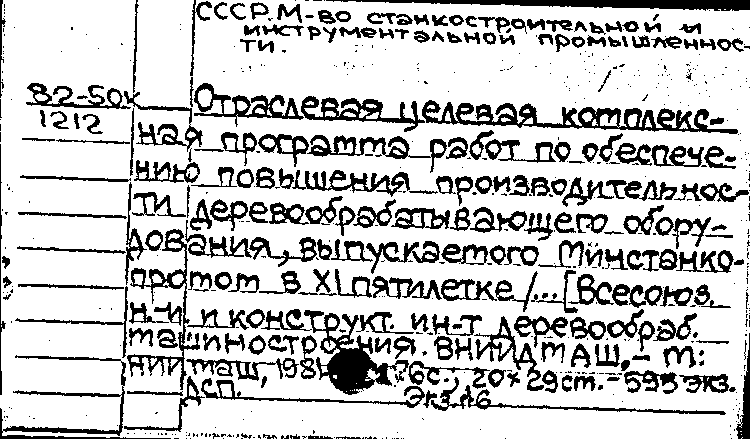 СССР. М-во станкостроительной и
инструментальной промышленнос-
ти.
82-50к
1212
Отраслевая целевая комплекс-
ная программа работ по обеспече-
нию повышения производительнос-
ти деревообрабатывающего обору-
дования, выпускаемого Минстанко-
промом в XI пятилетке /...[Всесоюз.
н.-и. и конструкт. ин-т деревообраб.
машиностроения. ВНИИДМАШ, - М:
НИИмаш, 1981 76с.; 20×29см. - 595 экз.
ДСП. Экз. №6